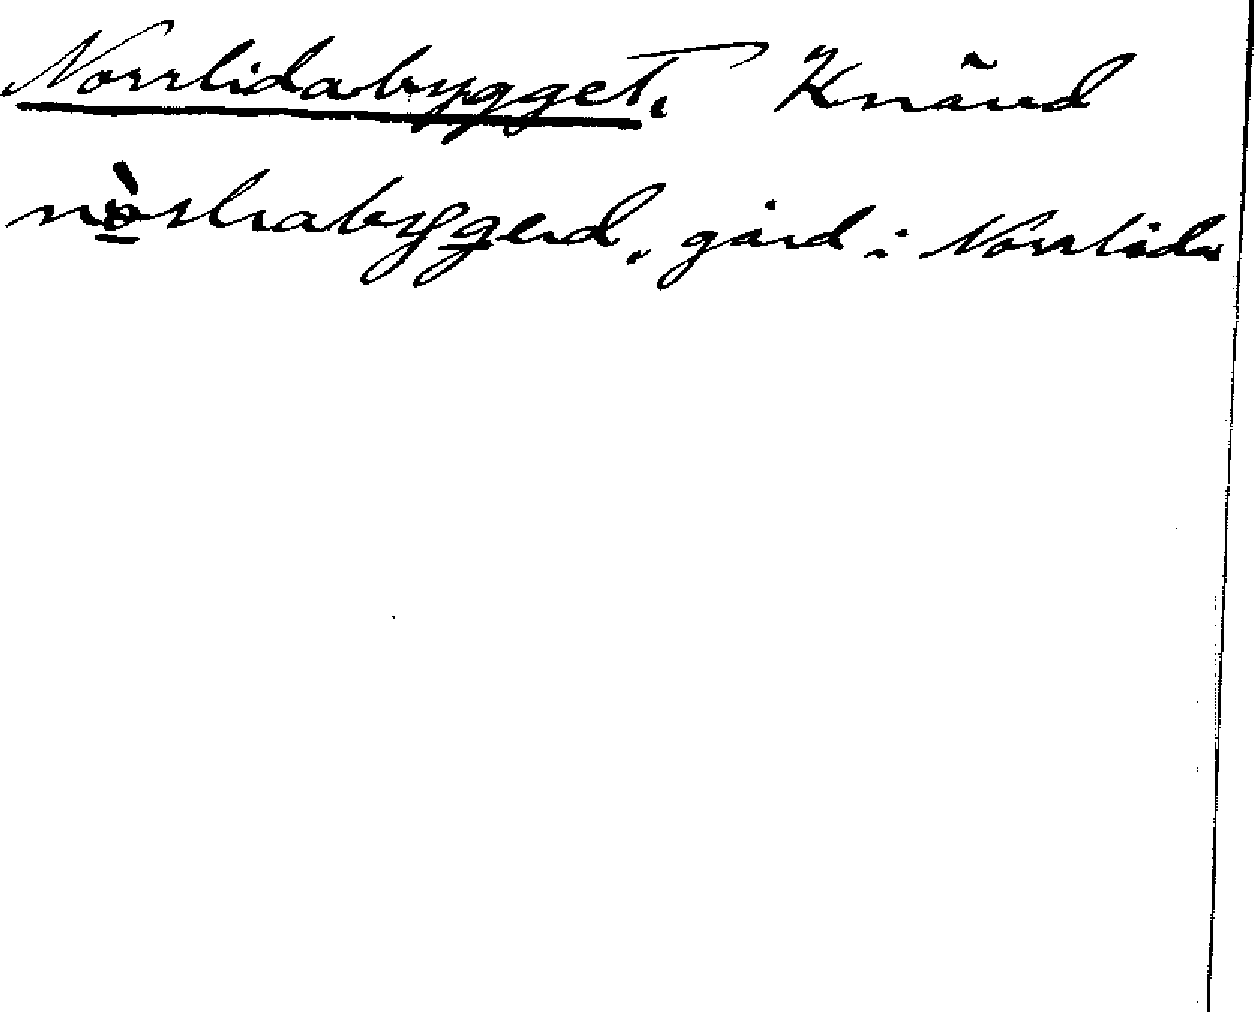 Norrlidabygget. Knäred
gård i Norrlida